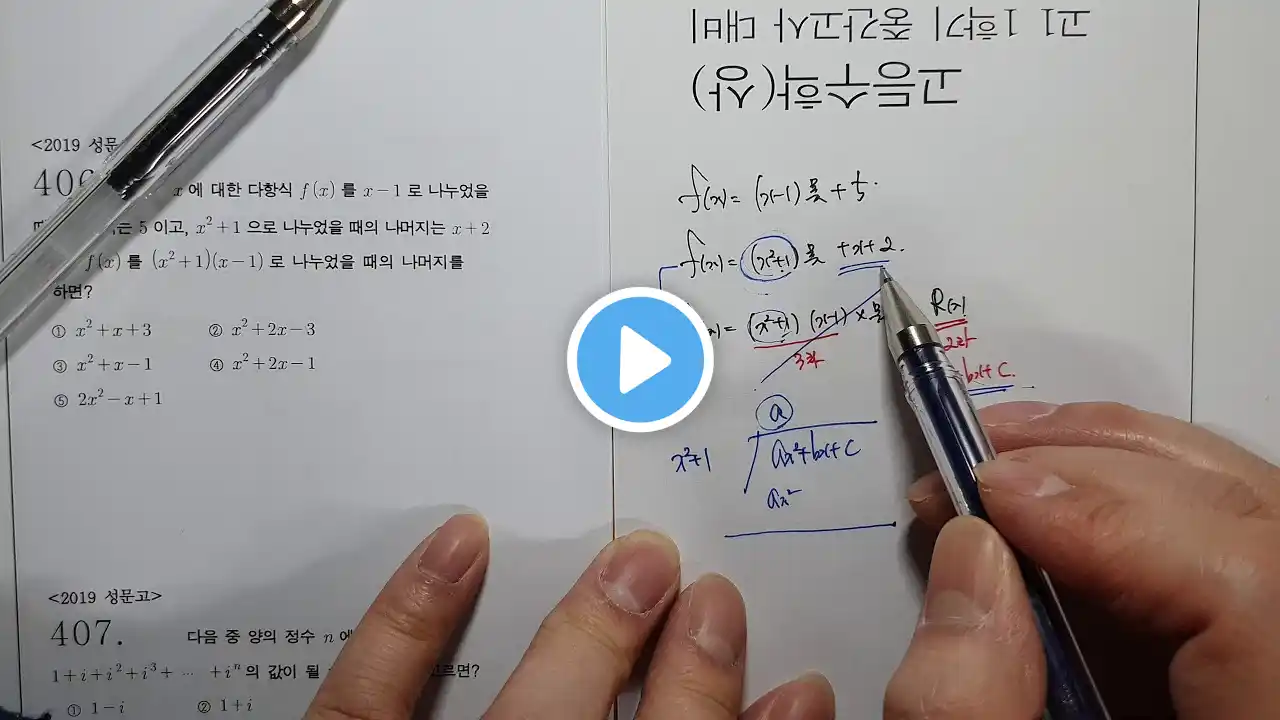 <2019 성문
406
x에 대한 다항식 f(x)를 x-1로 나누었을
는 5이고, x²+1으로 나누었을 때의 나머지는 x+2
f(x)를 (x²+1)(x-1)로 나누었을 때의 나머지를
하면?
① x²+x+3 ② x²+2x-3
③ x²+x-1 ④ x²+2x-1
⑤ 2x²-x+1
<2019 성문고>
407. 다음 중 양의 정수 n에
1+i+i²+i³+ ⋯ +iⁿ의 값이 될 고르면?
① 1-i ② 1+i
고1 1학기 중간고사 대비
고등수학(상)
f(x)= (x-1)몫+5.
f(x)= (x²+1)몫+x+2.
= (x²+1)(x-1)×몫 R(x)
3차 2차
bx+c.
a
x²+1 ax²+bx+c
ax²